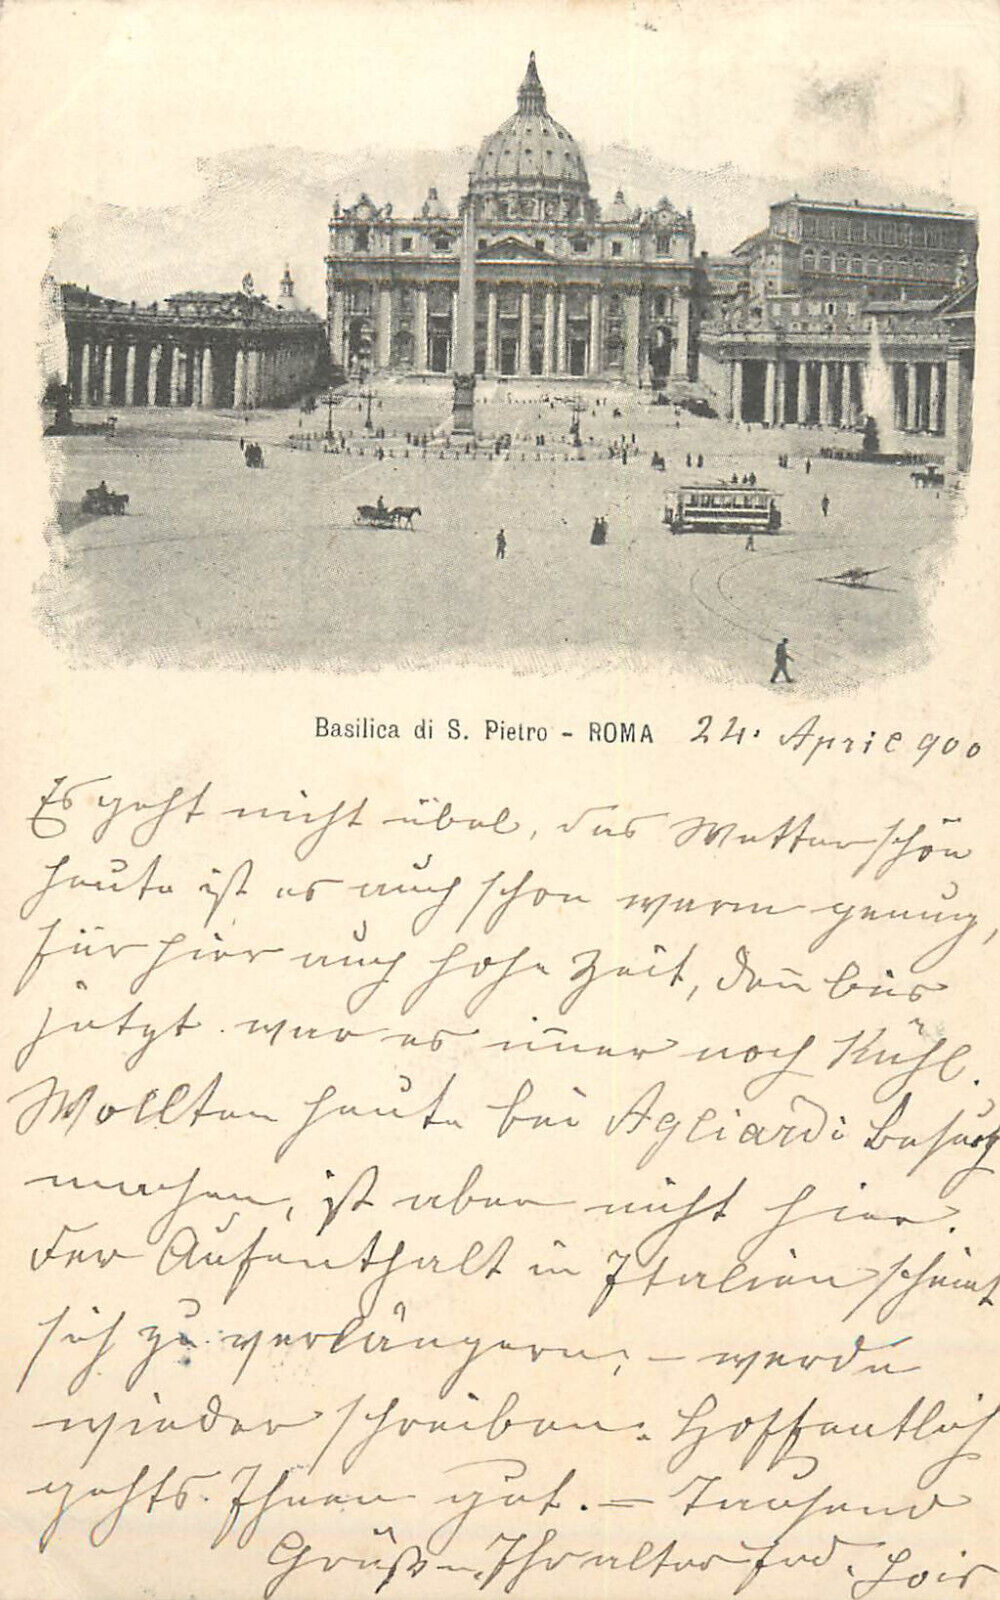 Basilica di S. Pietro - ROMA 24. April 900
Es geht nicht übel, das Wetter schön
heute ist es auch schon warm genug,
für hier auch hohe Zeit, den̄ bis
jetzt war es im̄er noch kühl.
Wollten heute bei Agliardi Besuch
machen, ist aber nicht hier.
Der Aufenthalt in Italien scheint
sich zu verlängern; – werde
wieder schreiben. Hoffentlich
gehts Ihnen gut. – Tausend
Grüße Ihr alter Frd. Lois